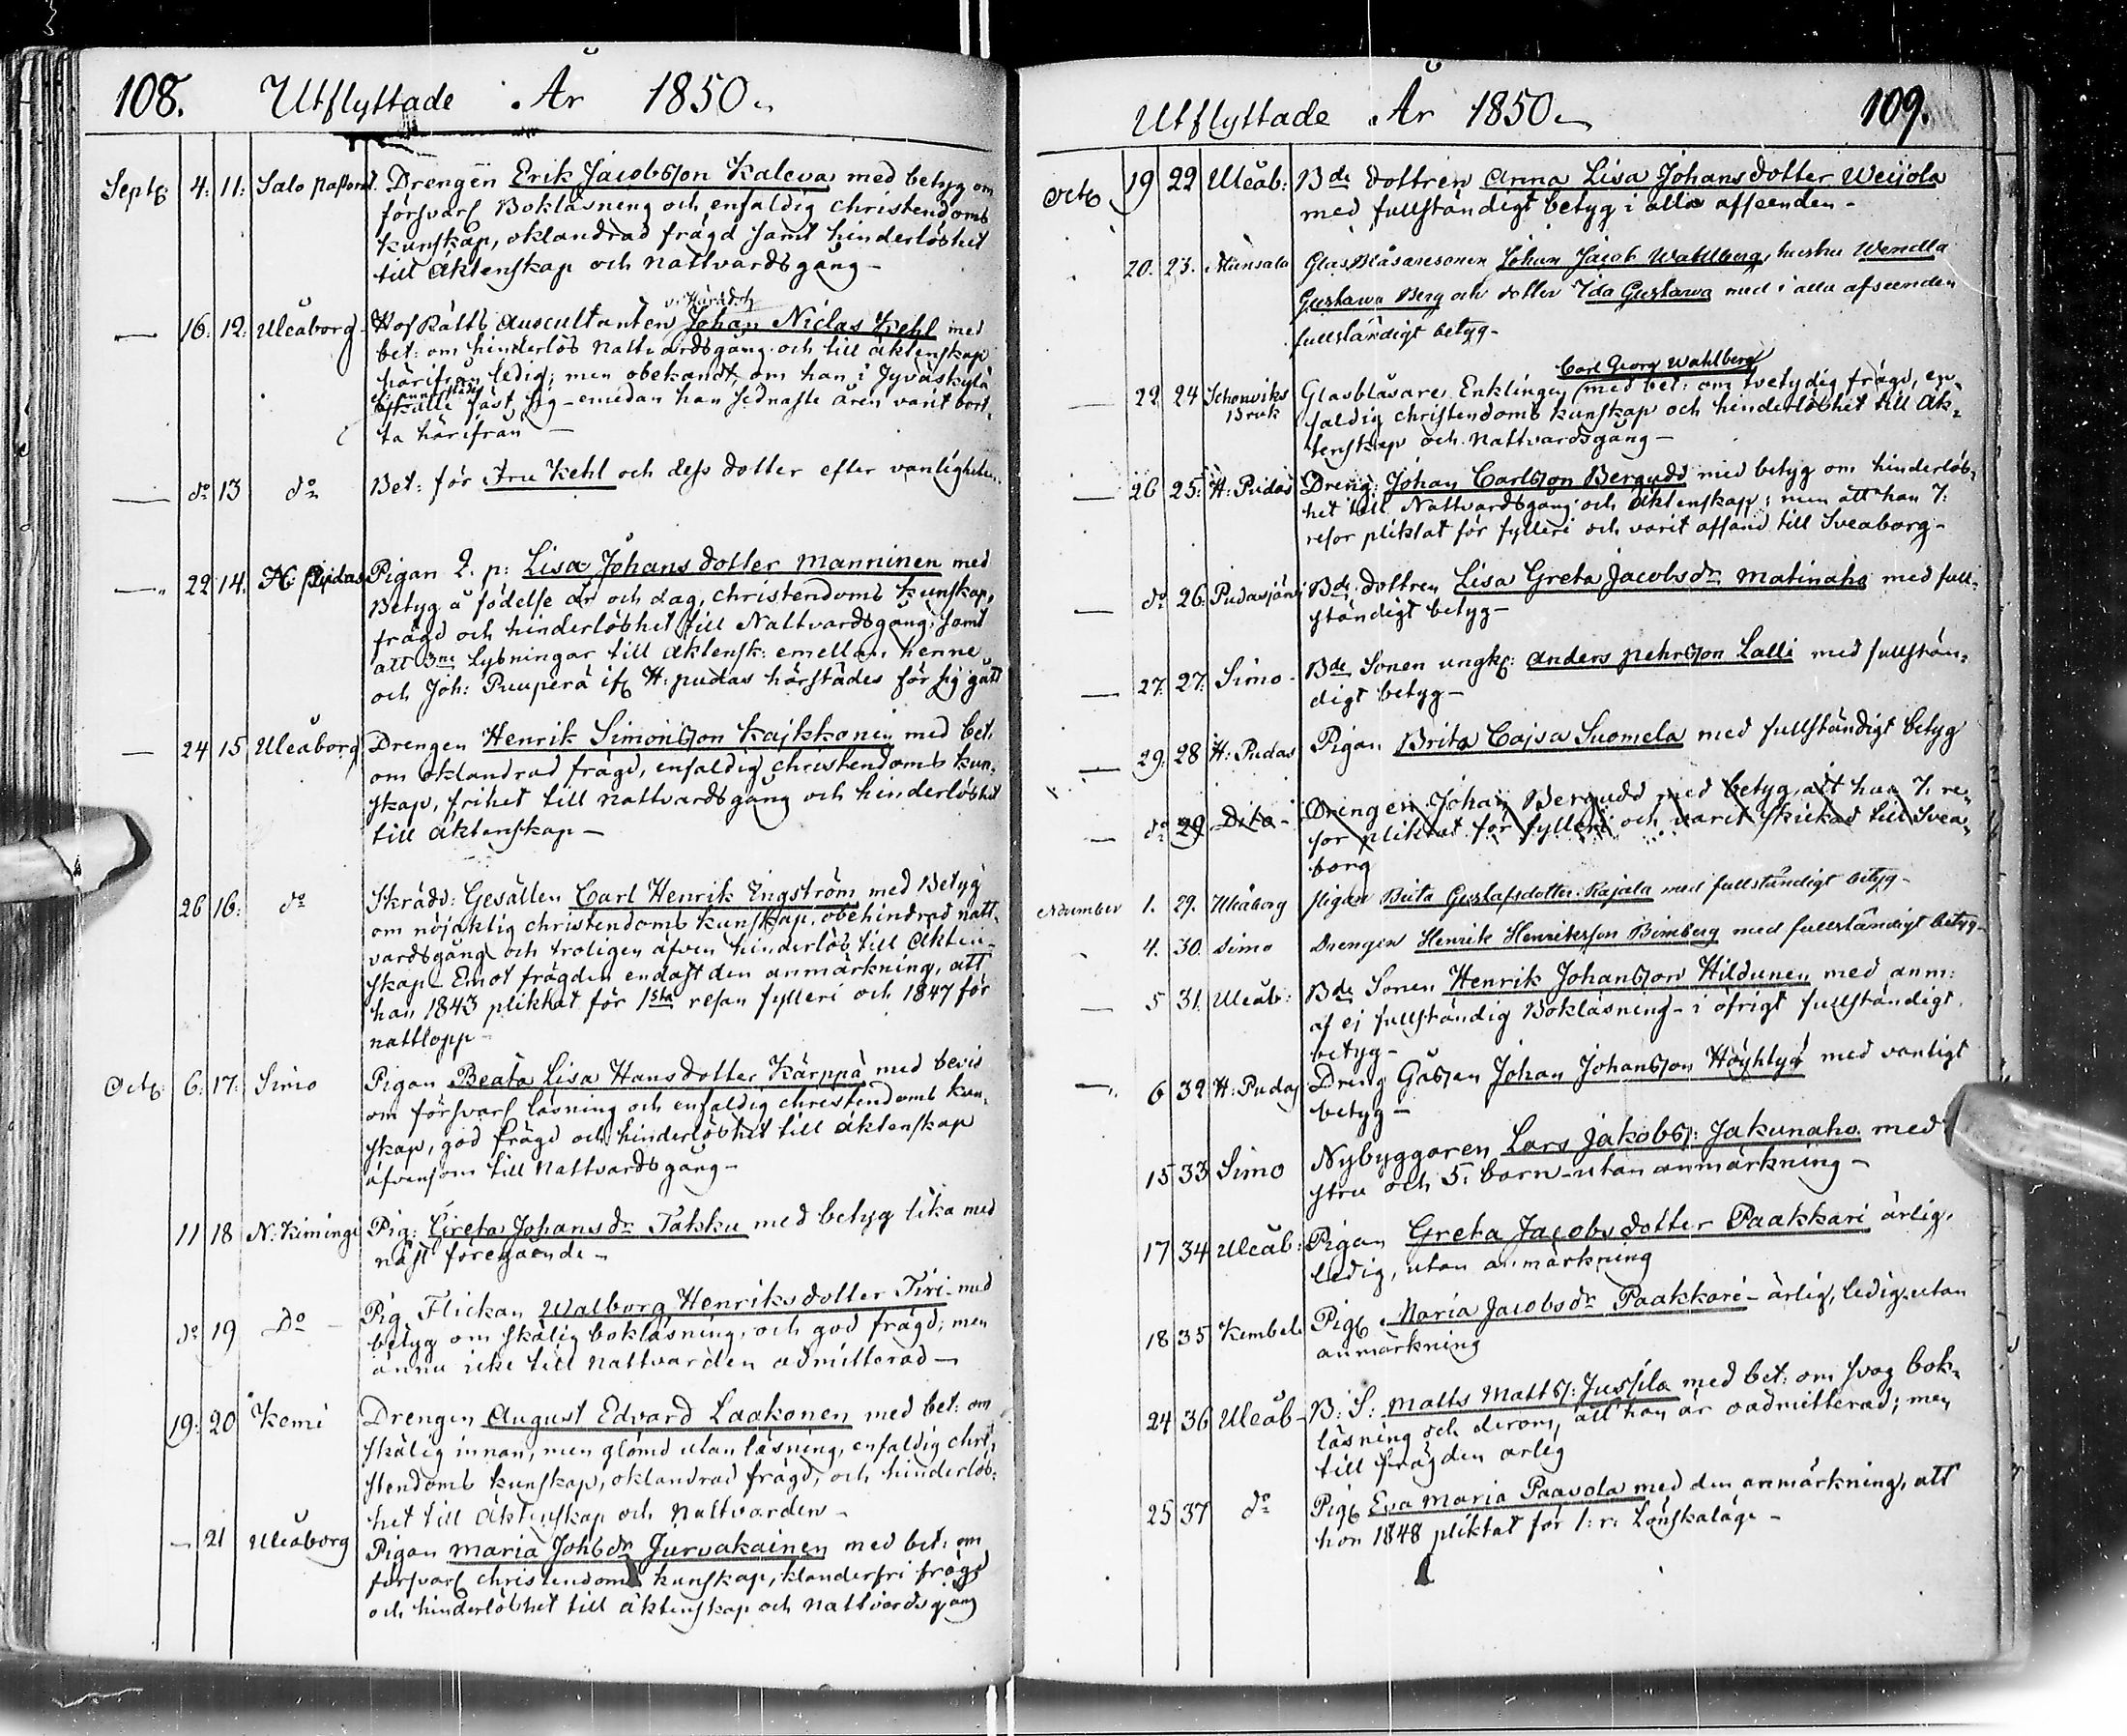 108. Utflyttade År 1850
Septr 4: 11: Salo pastorat. Drengen Erik Jacobsson Kaleva med betyg om
försvarl Bokläsning och enfaldig christendoms
kunskap, oklandrad frägd samt hinderlöshet
till äktenskap och nattvardsgång-
v. Häradsh
— 16: 12: Uleåborg Hof Rätts Auscultanten Johan Niclas Kehl med
bet: om hinderlös nattvardsgång och till äktenskap
härifrån ledig; men obekandt, om han i Jyväskylä
skulle fäst sig - emedan han sednaste åren varit bort-
ta härifrån —
— do 13 do Bet: för Fru Kehl och dess dotter efter vanligheten
— 22 14. H: pudas Pigan Q. p: Lisa Johans dotter Manninen med
Betyg å födelse år och dag, christendoms kunskap,
frägd och hinderlöshet till Nattvardsgång; samt
att 3ne lysningar till äktensk: emellan henne
och Joh: Puuperä if H: pudas härstädes för sig gått
— 24 15 Uleåborg Drengen Henrik Simonsson Kaikkonen med bet.
om oklandrad frägd, enfaldig christendoms kun-
skap, frihet till nattvardsgång och hinderlöshet
till äktenskap —
26 16: do Skrädd: Gesällen Carl Henrik Engström med Betyg
om nöjaklig christendoms kunskap, obehindrad natt-
vardsgång och troligen äfven hinderlös till äkten-
skap - Emot frägden endast den anmärkning, att
han 1843 pliktat för 1sta resan fylleri och 1847 för
nattlopp-
Octr. 6: 17: Simo Pigan Beata Lisa Hansdotter Kärppä med bevis
om försvarl läsning och enfaldig christendoms kun-
skap, god frägd och hinderlöshet till äktenskap
äfvensom till Nattvardsgång-
11 18 N: Kiminge Pig: Greta Johansdr Takku med betyg lika med
näst föregående-
do 19 Do Pig. Flickan Walborg Henriksdotter Tiri - med
betyg om skälig bokläsning, och god frägd; men
ännu icke till nattvarden admitterad —
19: 20 Kemi Drengen August Edvard Laakonen med bet: om
skälig innan, men glömd utan läsning, enfaldig chri-
stendoms kunskap, oklandrad frägd, och hinderlös-
het till äktenskap och Nattvarden-
— 21 Uleåborg Pigan Maria Johsdr Jurvakainen med bet: om
försvarl christendoms kunskap, klanderfri frägd
och hinderlöshet till äktenskap och nattvardsgång
Utflyttade År 1850 109.
Octr 19 22 Uleåb: Bde dottren Anna Lisa Johansdotter Weijola
med fullständigt betyg i alla afseenden-
20. 23. Munsala Glasblåsaresonen Johan Jacob Wahlberg, hustru Wendla
Gustawa Berg och dotter Ida Gustawa med i alla afseenden
fullständigt betyg-
Carl Georg Wahlberg
— 22 24 Schonviks Bruk Glasblåsare Enklingen med bet: om tvetydig frägd, en-
faldig christendoms kunskap och hinderlöshet till äk-
tenskap och nattvardsgång —
— 26 25: H: Pudas Dreng: Johan Carlsson Bergudd med betyg om hinderlös-
het till Nattvardsgång och äktenskap; men att han 7:
resor pliktat för fylleri och varit afsänd till Sveaborg-
— do 26. Pudasjärvi Bde dottren Lisa Greta Jacobsdr Matinaho med full-
ständigt betyg-
— 27. 27: Simo - Bde Sonen ungk: Anders Pehrsson Lalli med fullstän-
digt betyg-
— 29: 28 H: Pudas Pigan Brita Cajsa Suomela med fullständigt betyg
— do 29 Dito - Drengen Johan Bergudd med betyg, att han 7. re-
sor pliktat för fylleri och varit skickad till Svea-
borg
November 1. 29. Uleåborg Pigan Brita Gustafsdotter Rajala med fullständigt betyg-
4. 30. Simo Drengen Henrik Henriksson Bimberg med fullständigt betyg-
— 5 31. Uleåb: Bde Sonen Henrik Johansson Hildunen med anm:
af ej fullständig Bokläsning - i öfrigt fullständigt
betyg-
— 6 32 H: Pudas Dreng Gåssen Johan Johansson Höyhtyä med vanligt
betyg-
15 33 Simo Nybyggaren Lars Jakobs: Jakunaho med
stru och 5. barn - utan anmärkning —
17 34 Uleåb: Pigan Greta Jacobsdotter Paakkari ärlig,
ledig, utan anmärkning
18 35 Kembele Pig Maria Jacobsdr Paakkari - ärlig, ledig, utan
anmärkning
24 36 Uleåb - B: S: Matts Matts: Jussila med bet: om svag bok-
läsning och derom, att han är oadmitterad; men
till frägden ärlig
25 37 do Pig Eva Maria Paavola med den anmärkning, att
hon 1848 pliktat för 1: r: Lönskaläge -